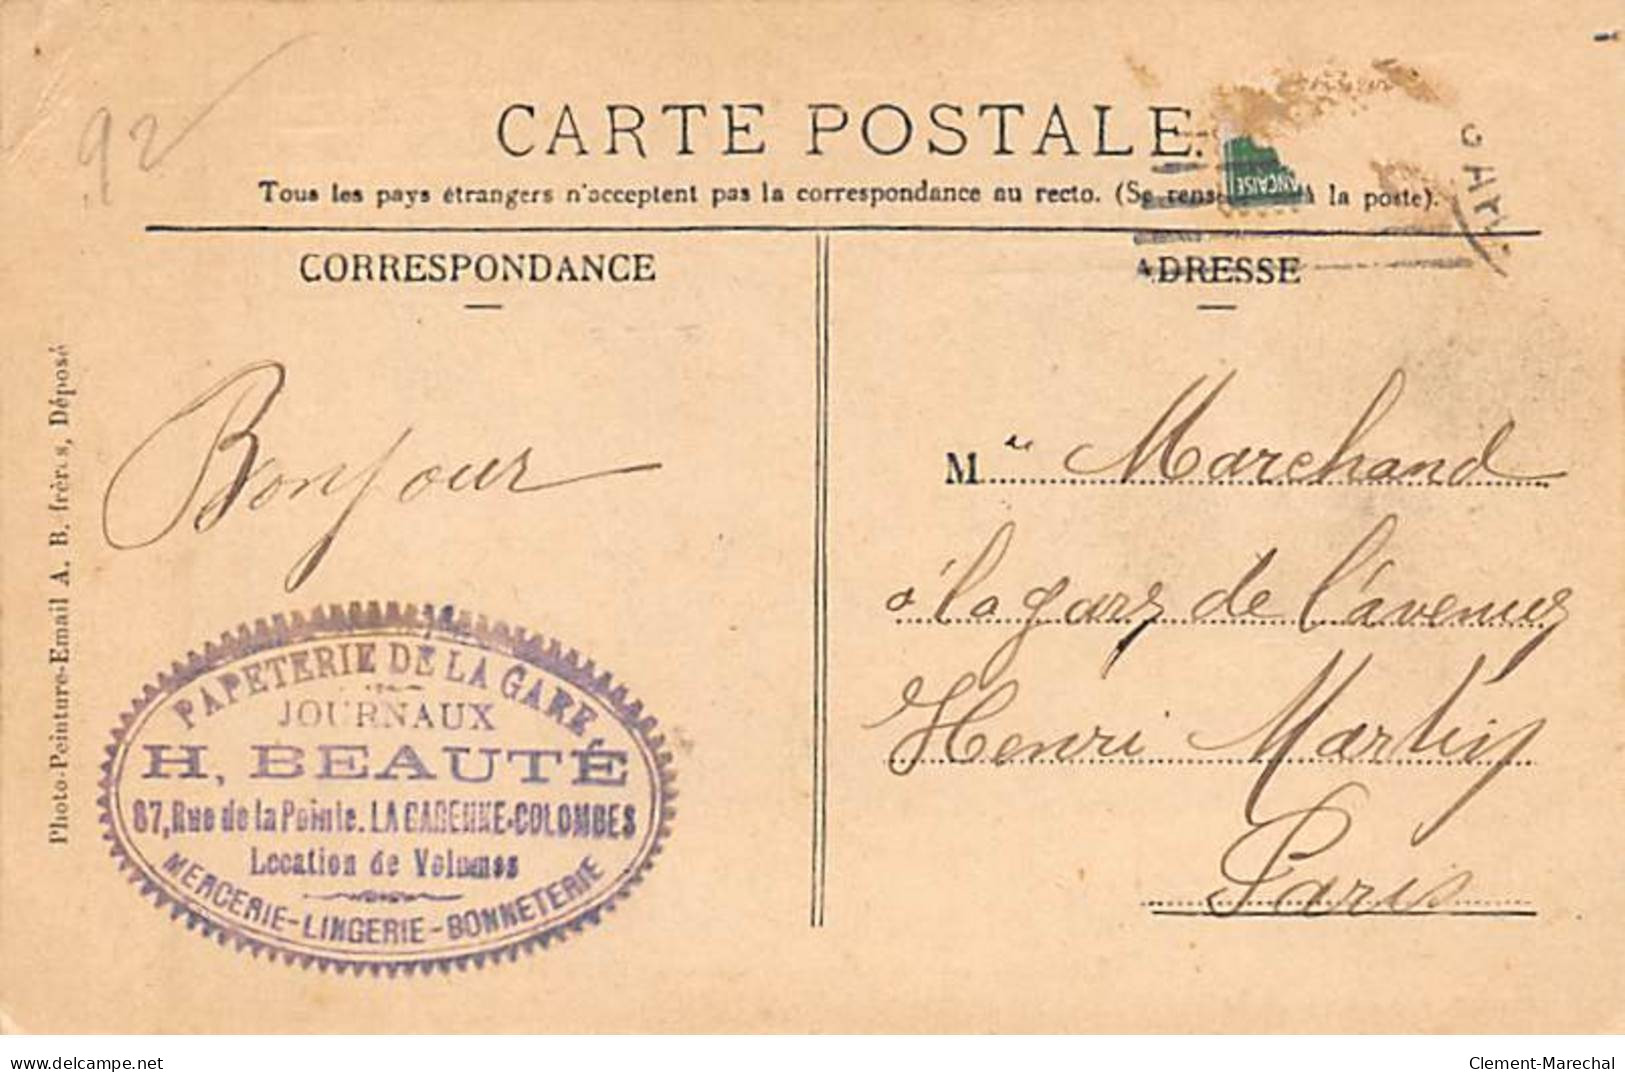 92
CARTE POSTALE
Tous les pays étrangers n'acceptent pas la correspondance au recto. (Se à la poste).
ANÇAISE
CORRESPONDANCE
ADRESSE
Photo-Peinture-Email A. B. frères, Déposé
Bonjour
PAPETERIE DE LA GARE
JOURNAUX
H. BEAUTÉ
87, Rue de la Pointe. LA GARENNE-COLOMBES
Location de Volumes
MERCERIE-LINGERIE-BONNETERIE
M Marchand
à la gare de l'avenue
Henri Martin
Paris
delcampe.net
Clement-Marechal